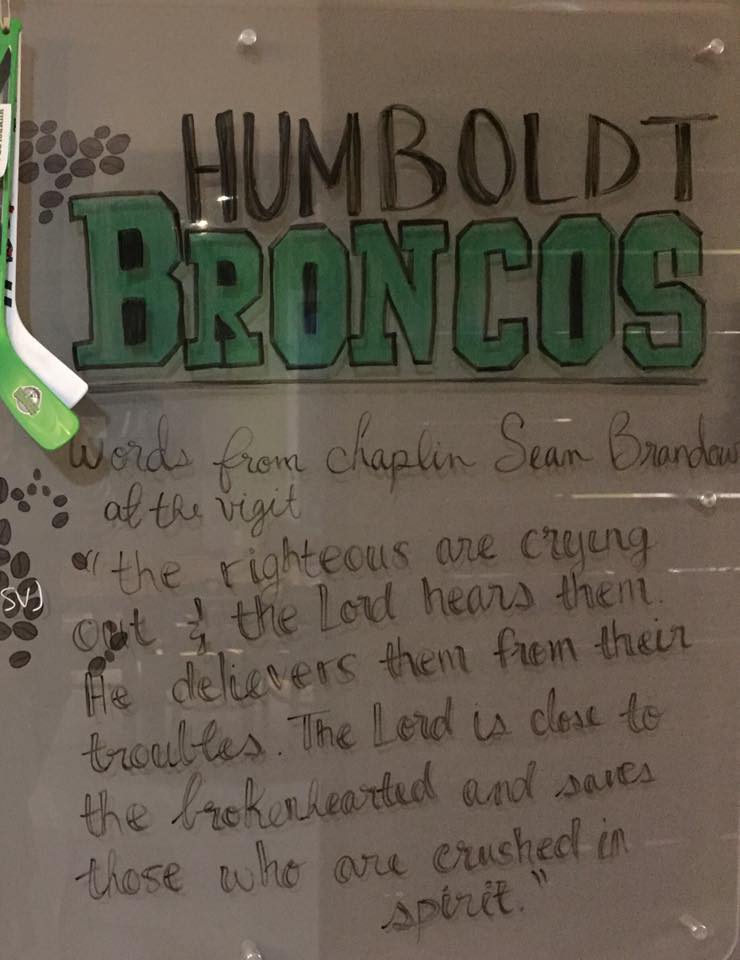 HUMBOLDT
BRONCOS
Words from chaplin Sean Brandow
at the vigit
"the righteous are crying
out & the Lord hears them.
He delievers them from their
troubles. The Lord is close to
the brokenhearted and saves
those who are crushed in
spirit."
SV)